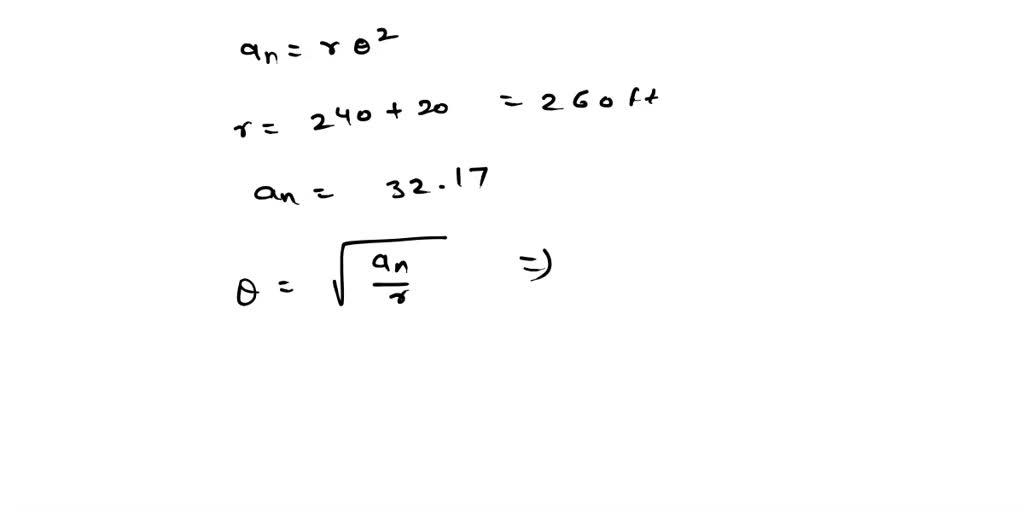 an = r θ²
r = 240 + 20 = 260 ft
an = 32.17
θ = √(an/r) =>